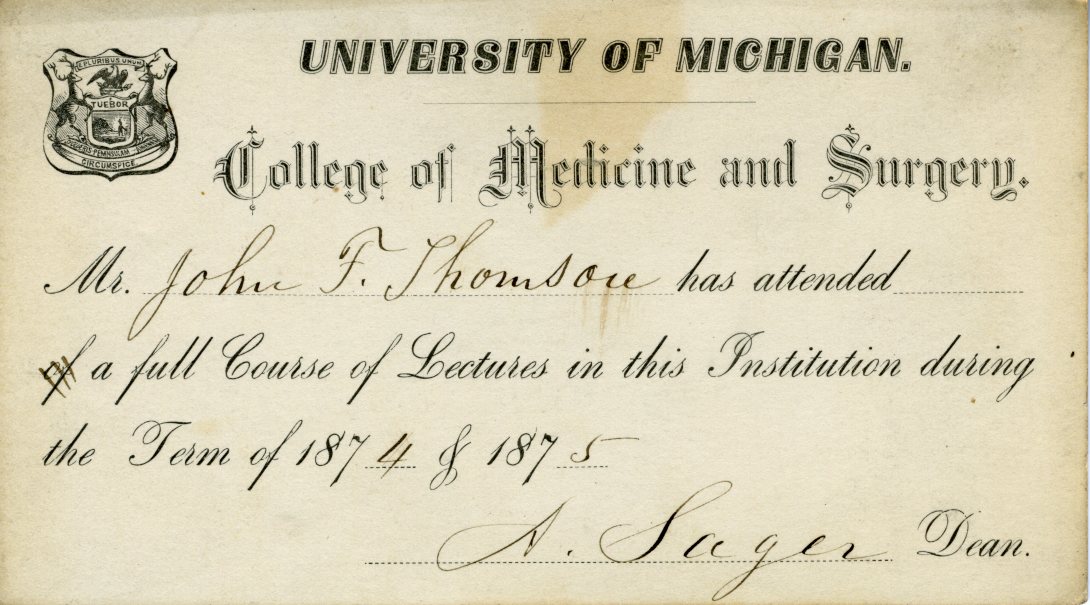 E PLURIBUS UNUM
TUEBOR
CIRCUMSPICE
UNIVERSITY OF MICHIGAN.
College of Medicine and Surgery.
Mr. John F. Thomson has attended
of a full Course of Lectures in this Institution during
the Term of 1874 & 1875
A. Sager Dean.